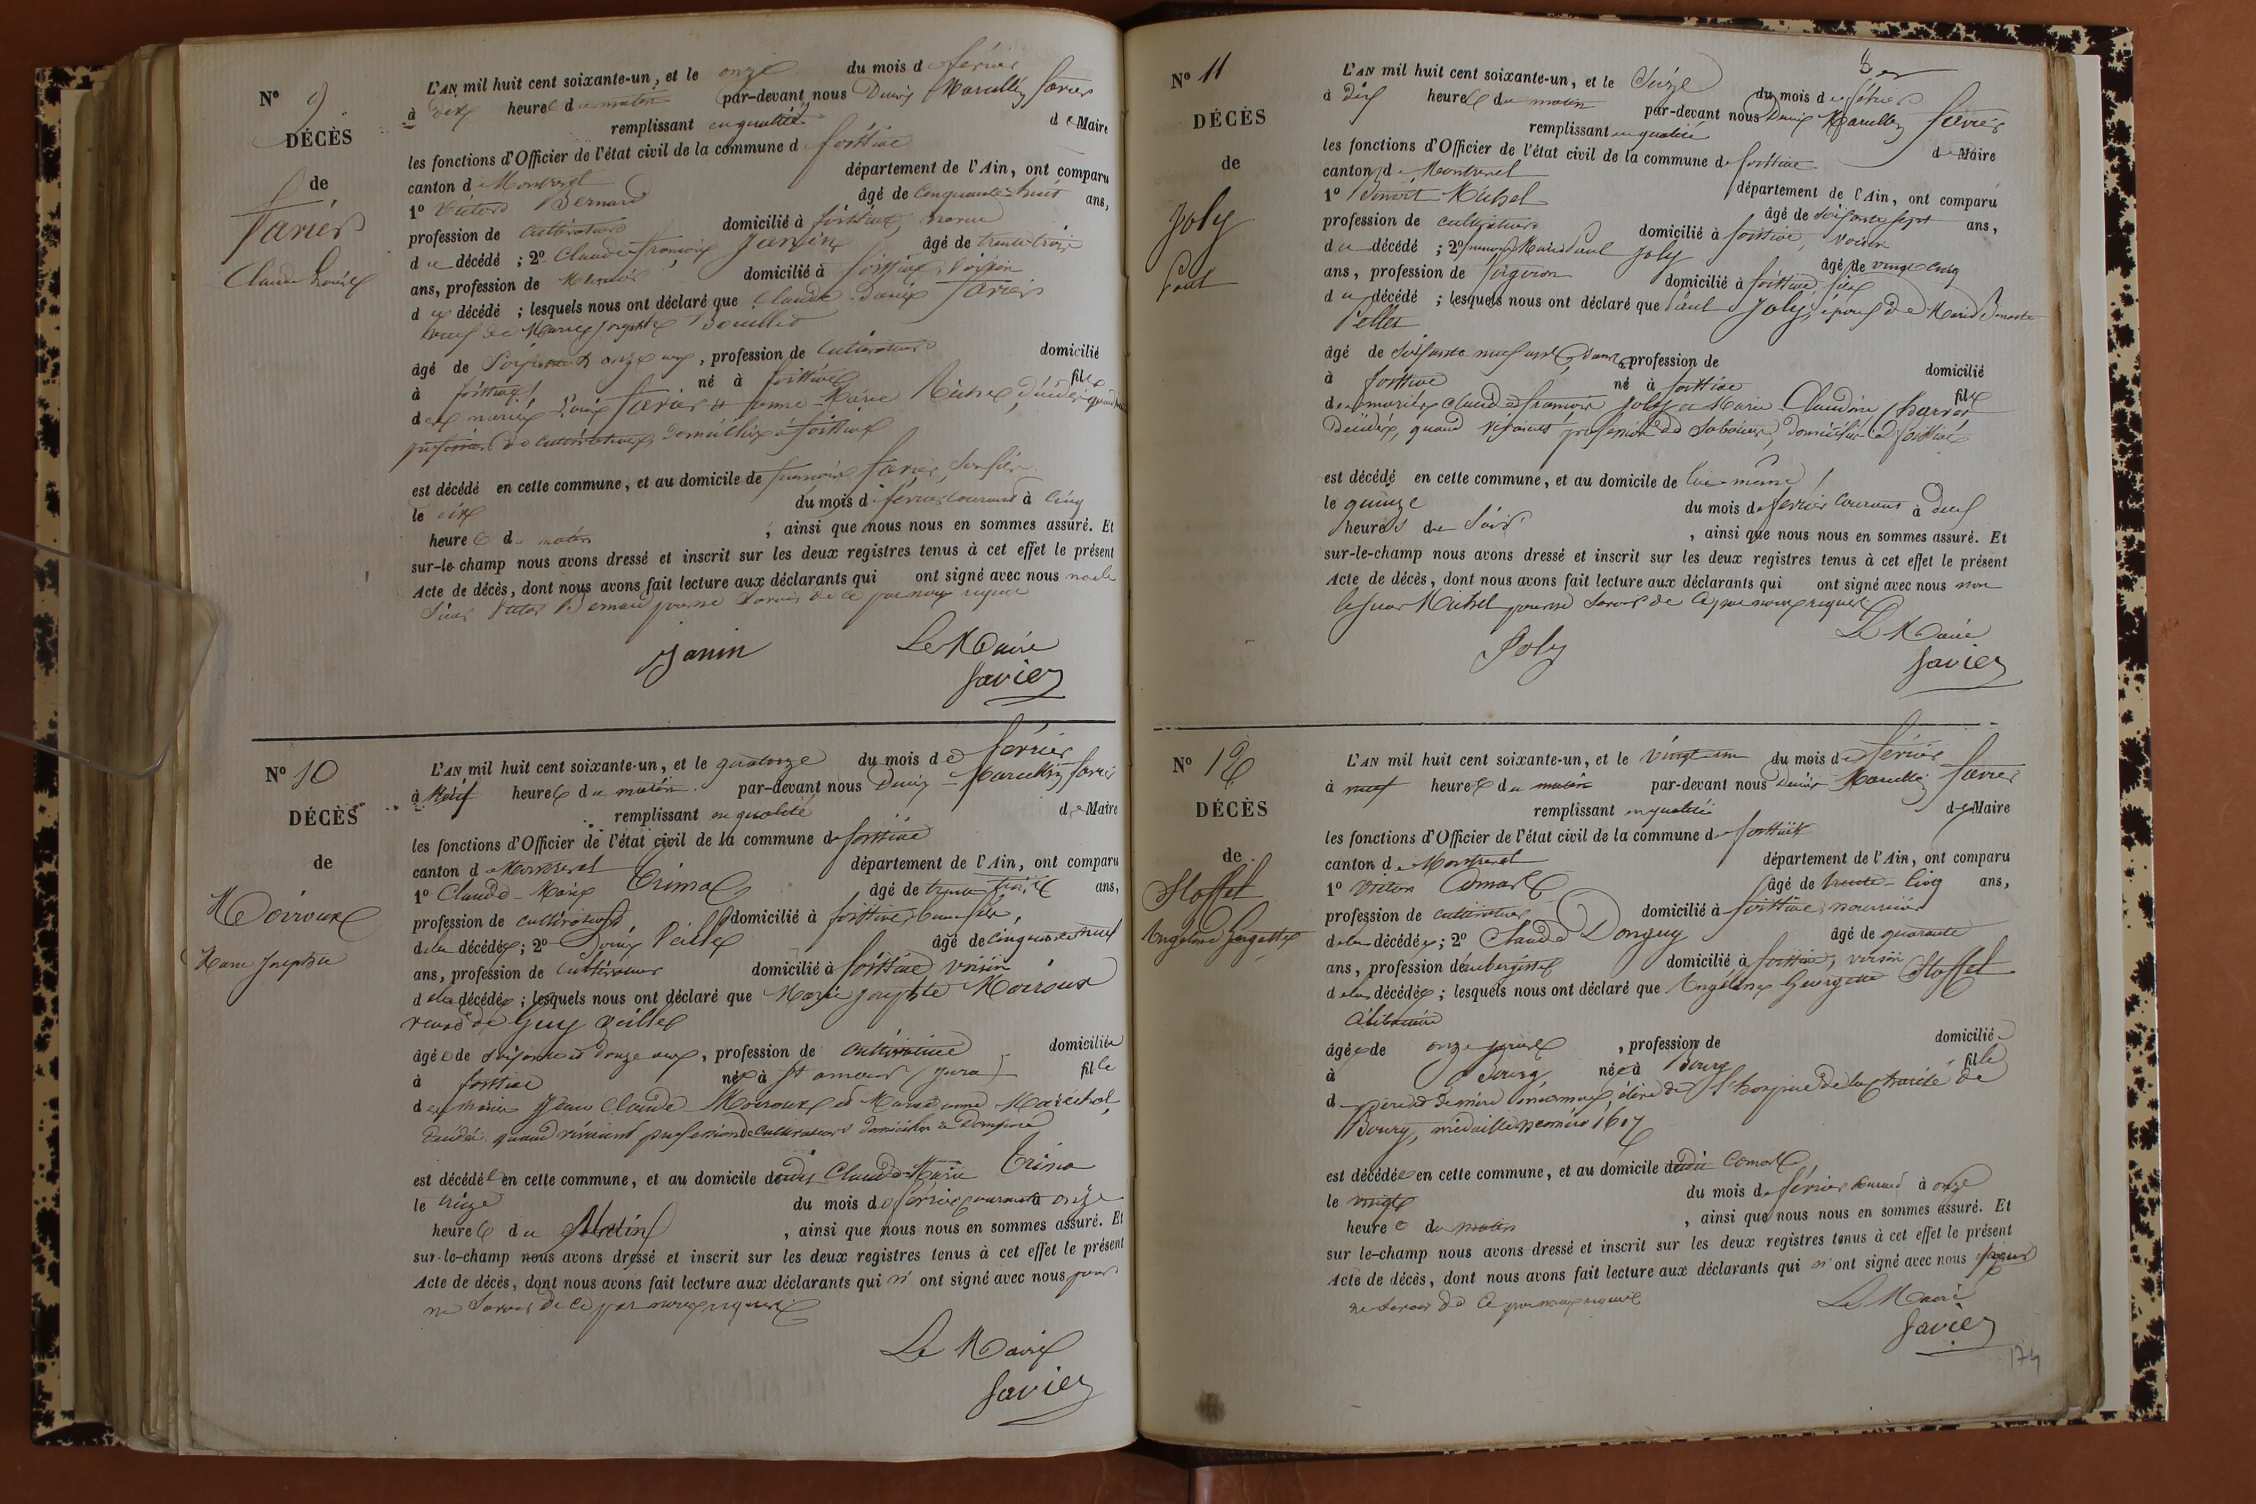 N° 9
DÉCÈS
de
Favier
Claude Louis
L'AN mil huit cent soixante-un, et le onze du mois de février
à dix heures du matin par-devant nous Denis Marcellin Favier
remplissant en qualité de Maire
les fonctions d'Officier de l'état civil de la commune de
canton de Montrevel département de l'Ain, ont comparu
1° Victor Bernard âgé de cinquante-huit ans,
profession de cultivateur domicilié à
du décédé ; 2° Claude François Janin âgé de trente-trois
ans, profession de domicilié à voisin
du décédé ; lesquels nous ont déclaré que Claude Louis Favier
veuf de Marie Josephte Bouillet
âgé de soixante et onze ans, profession de cultivateur domicilié
à né à fils
des mariés Louis Favier et Marie décédés quand
profession de cultivateurs, domiciliés à
est décédé en cette commune, et au domicile de François Favier, son fils
le dix du mois de février courant à cinq
heures du matin , ainsi que nous nous en sommes assuré. Et
sur-le-champ nous avons dressé et inscrit sur les deux registres tenus à cet effet le présent
Acte de décès, dont nous avons fait lecture aux déclarants qui ont signé avec nous non le
sieur Victor Bernard pour ne savoir de ce par nous requis
Janin Le Maire
Favier
N° 10
DÉCÈS
de
Moiroux
Marie Josephte
L'AN mil huit cent soixante-un, et le quatorze du mois de février
à neuf heures du matin par-devant nous Denis Marcellin Favier
remplissant en qualité de Maire
les fonctions d'Officier de l'état civil de la commune de
canton de Montrevel département de l'Ain, ont comparu
1° Claude Marie âgé de trente ans,
profession de cultivateur domicilié à beau-fils,
de la décédée ; 2° Denis âgé de cinquante neuf
ans, profession de cultivateur domicilié à voisin
de la décédée ; lesquels nous ont déclaré que Marie Josephte Moiroux
veuve de Guy
âgée de soixante et douze ans, profession de cultivatrice domiciliée
à née à St amour (Jura) fille
des mariés Jean Claude Moiroux et Marie anne Maréchal,
décédés quand vivaient profession de cultivateurs domiciliés à Domsure
est décédée en cette commune, et au domicile dudit Claude Marie
le treize du mois de février courant à onze
heures du matin , ainsi que nous nous en sommes assuré. Et
sur-le-champ nous avons dressé et inscrit sur les deux registres tenus à cet effet le présent
Acte de décès, dont nous avons fait lecture aux déclarants qui n'ont signé avec nous pour
ne savoir de ce par nous requis
Le Maire
Favier
N° 11
DÉCÈS
de
Joly
Paul
L'AN mil huit cent soixante-un, et le seize du mois de février
à dix heures du matin par-devant nous Denis Marcellin Favier
remplissant en qualité de Maire
les fonctions d'Officier de l'état civil de la commune de
canton de Montrevel département de l'Ain, ont comparu
1° Benoit Michel âgé de soixante sept ans,
profession de cultivateur domicilié à voisin
du décédé ; 2° Marie Paul Joly âgé de vingt cinq
ans, profession de domicilié à fils
du décédé ; lesquels nous ont déclaré que Paul Joly, époux de Marie
Pellet
âgé de soixante neuf ans , profession de domicilié
à né à fils
des mariés Claude François Joly et Marie Claudine
décédés, quand vivaient profession de domiciliés à
est décédé en cette commune, et au domicile de lui-même
le quinze du mois de février courant à deux
heures du soir , ainsi que nous nous en sommes assuré. Et
sur-le-champ nous avons dressé et inscrit sur les deux registres tenus à cet effet le présent
Acte de décès, dont nous avons fait lecture aux déclarants qui ont signé avec nous non
le sieur Michel pour ne savoir de ce par nous requis
Joly Le Maire
Favier
N° 12
DÉCÈS
de
Stoffel
Angeline Georgette
L'AN mil huit cent soixante-un, et le vingt un du mois de février
à neuf heures du matin par-devant nous Denis Marcellin Favier
remplissant en qualité de Maire
les fonctions d'Officier de l'état civil de la commune de
canton de Montrevel département de l'Ain, ont comparu
1° Victor âgé de trente-cinq ans,
profession de cultivateur domicilié à nourricier
de la décédée ; 2° Claude Donguy âgé de quarante
ans, profession d'aubergiste domicilié à voisin
de la décédée ; lesquels nous ont déclaré que Angéline Georgette Stoffel
célibataire
âgée de onze , profession de domiciliée
à Bourg née à Bourg fille
de père et de mère inconnus, élève de l'hospice de la charité de
Bourg, médaille numéro 1617
est décédée en cette commune, et au domicile dudit
le vingt du mois de février courant à onze
heures du matin , ainsi que nous nous en sommes assuré. Et
sur le-champ nous avons dressé et inscrit sur les deux registres tenus à cet effet le présent
Acte de décès, dont nous avons fait lecture aux déclarants qui n'ont signé avec nous pour
ne savoir de ce par nous requis
Le Maire
Favier
174